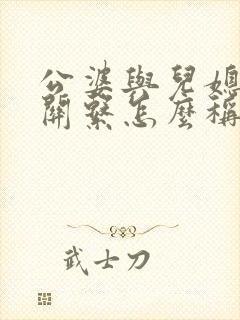 公婆與兒媳
關繫怎麼稱
武士刀